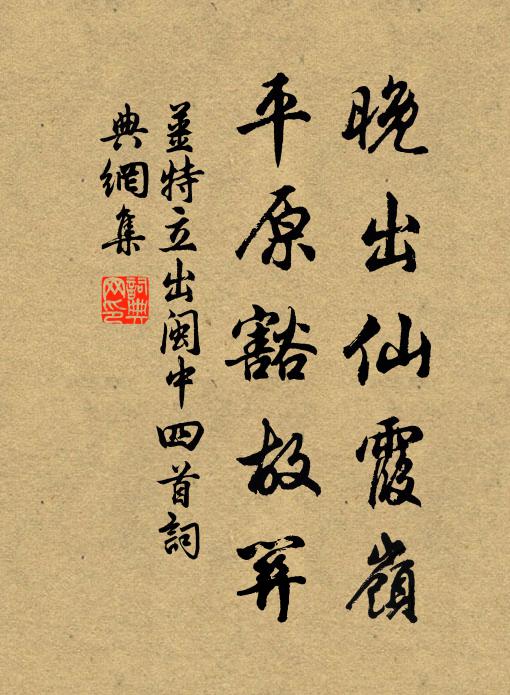 晚出仙霞嶺
平原豁故開
薑特立出闽中四首詞
典網集
詞典
网印